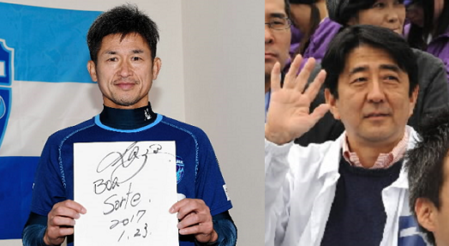 Boa
Sorte
2017
1.23.